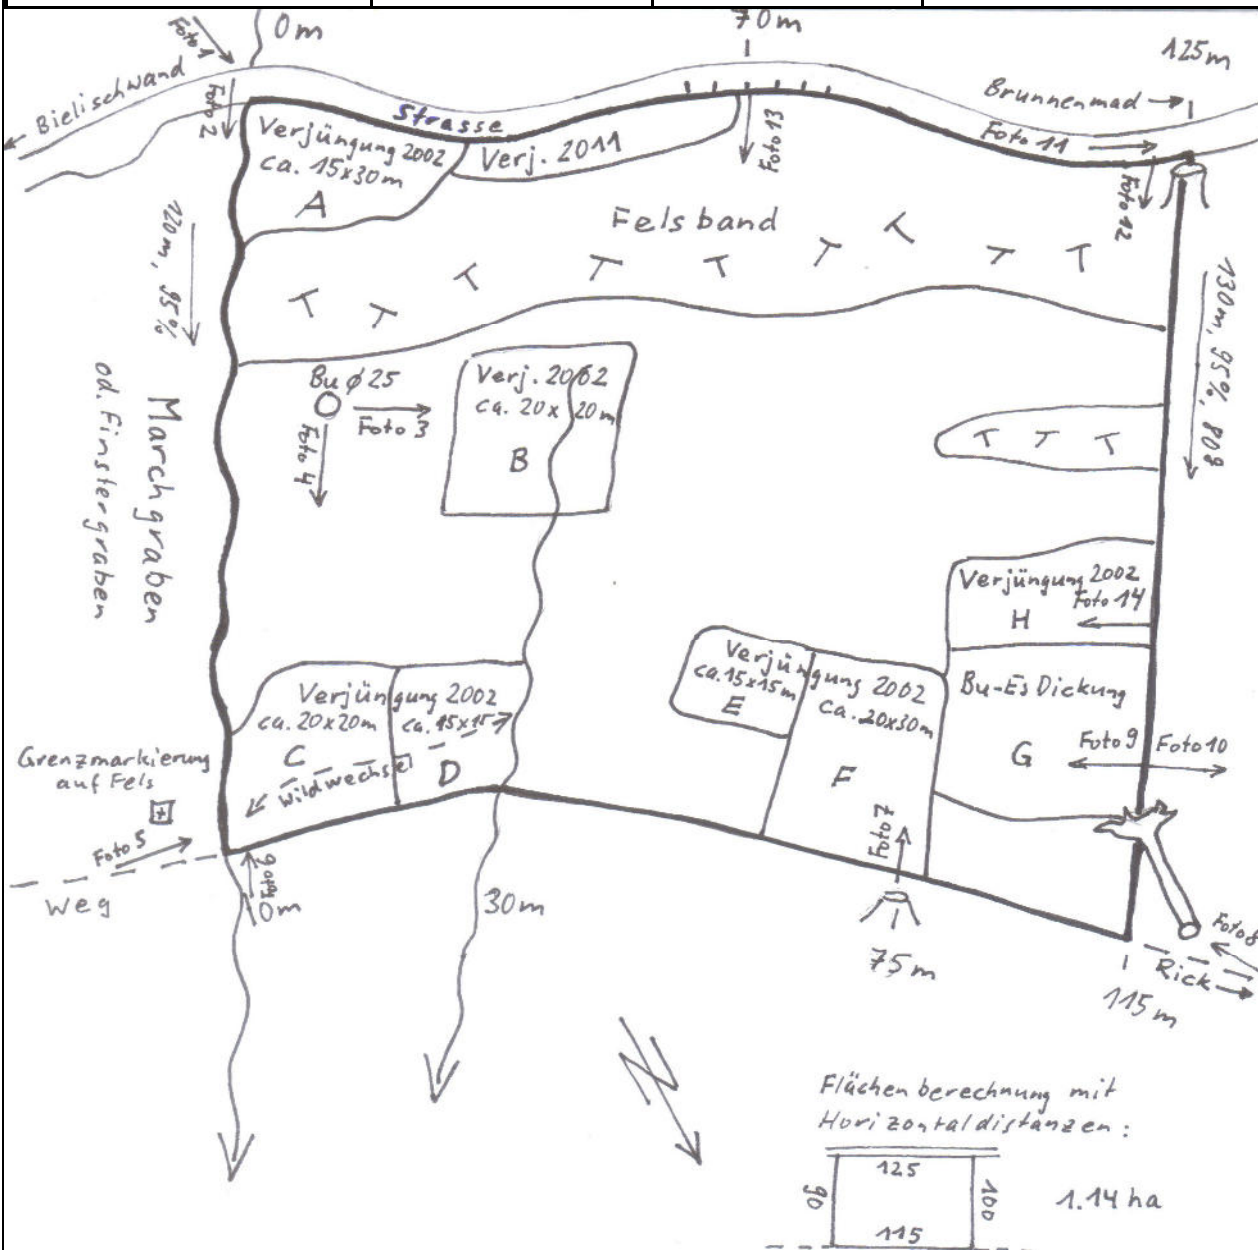 0m
70m
125m
Foto 1
Bielischwand
Foto 2
Strasse
Brunnenmad
Foto 11
Foto 12
Foto 13
Verjüngung 2002
ca. 15x30m
A
Verj. 2011
Felsband
120m, 95%
130m, 95%, 80g
Marchgraben
od. Finstergraben
Bu ø 25
Foto 3
Foto 4
Verj. 2002
ca. 20x20m
B
Verjüngung 2002
Foto 14
H
Bu-Es Dickung
G
Foto 9
Foto 10
Verjüngung 2002
ca. 15x15m
E
ca. 20x30m
F
Foto 7
Verjüngung 2002
ca. 20x20m
ca. 15x15
C
D
Wildwechsel
Grenzmarkierung
auf Fels
Foto 5
Weg
Foto 6
0m
30m
75m
115m
Foto 8
Rick
N
Flächenberechnung mit
Horizontaldistanzen:
125
90
100
115
1.14 ha